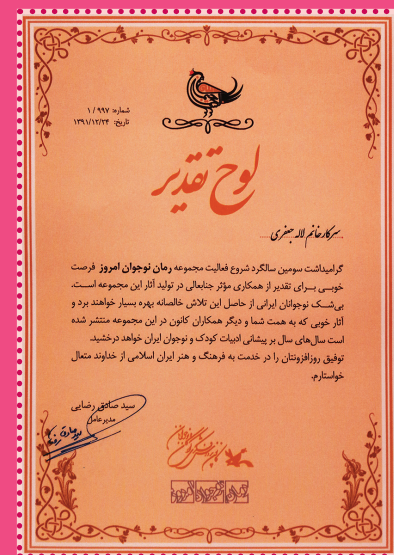 شماره: ۹۹۷ / ۱
تاریخ: ۱۳۹۱/۱۲/۲۴
لوح تقدیر
سرکار خانم لاله جعفری
گرامیداشت سومین سالگرد شروع فعالیت مجموعه رمان نوجوان امروز فرصت
خوبی برای تقدیر از همکاری مؤثر جنابعالی در تولید آثار این مجموعه است.
بی‌شک نوجوانان ایرانی از حاصل این تلاش خالصانه بهره بسیار خواهند برد و
آثار خوبی که به همت شما و دیگر همکاران کانون در این مجموعه منتشر شده
است سال‌های سال بر پیشانی ادبیات کودک و نوجوان ایران خواهد درخشید.
توفیق روزافزونتان را در خدمت به فرهنگ و هنر ایران اسلامی از خداوند متعال
خواستارم.
سید صادق رضایی
مدیرعامل
کانون پرورش فکری کودکان و نوجوانان
رمان نوجوان امروز